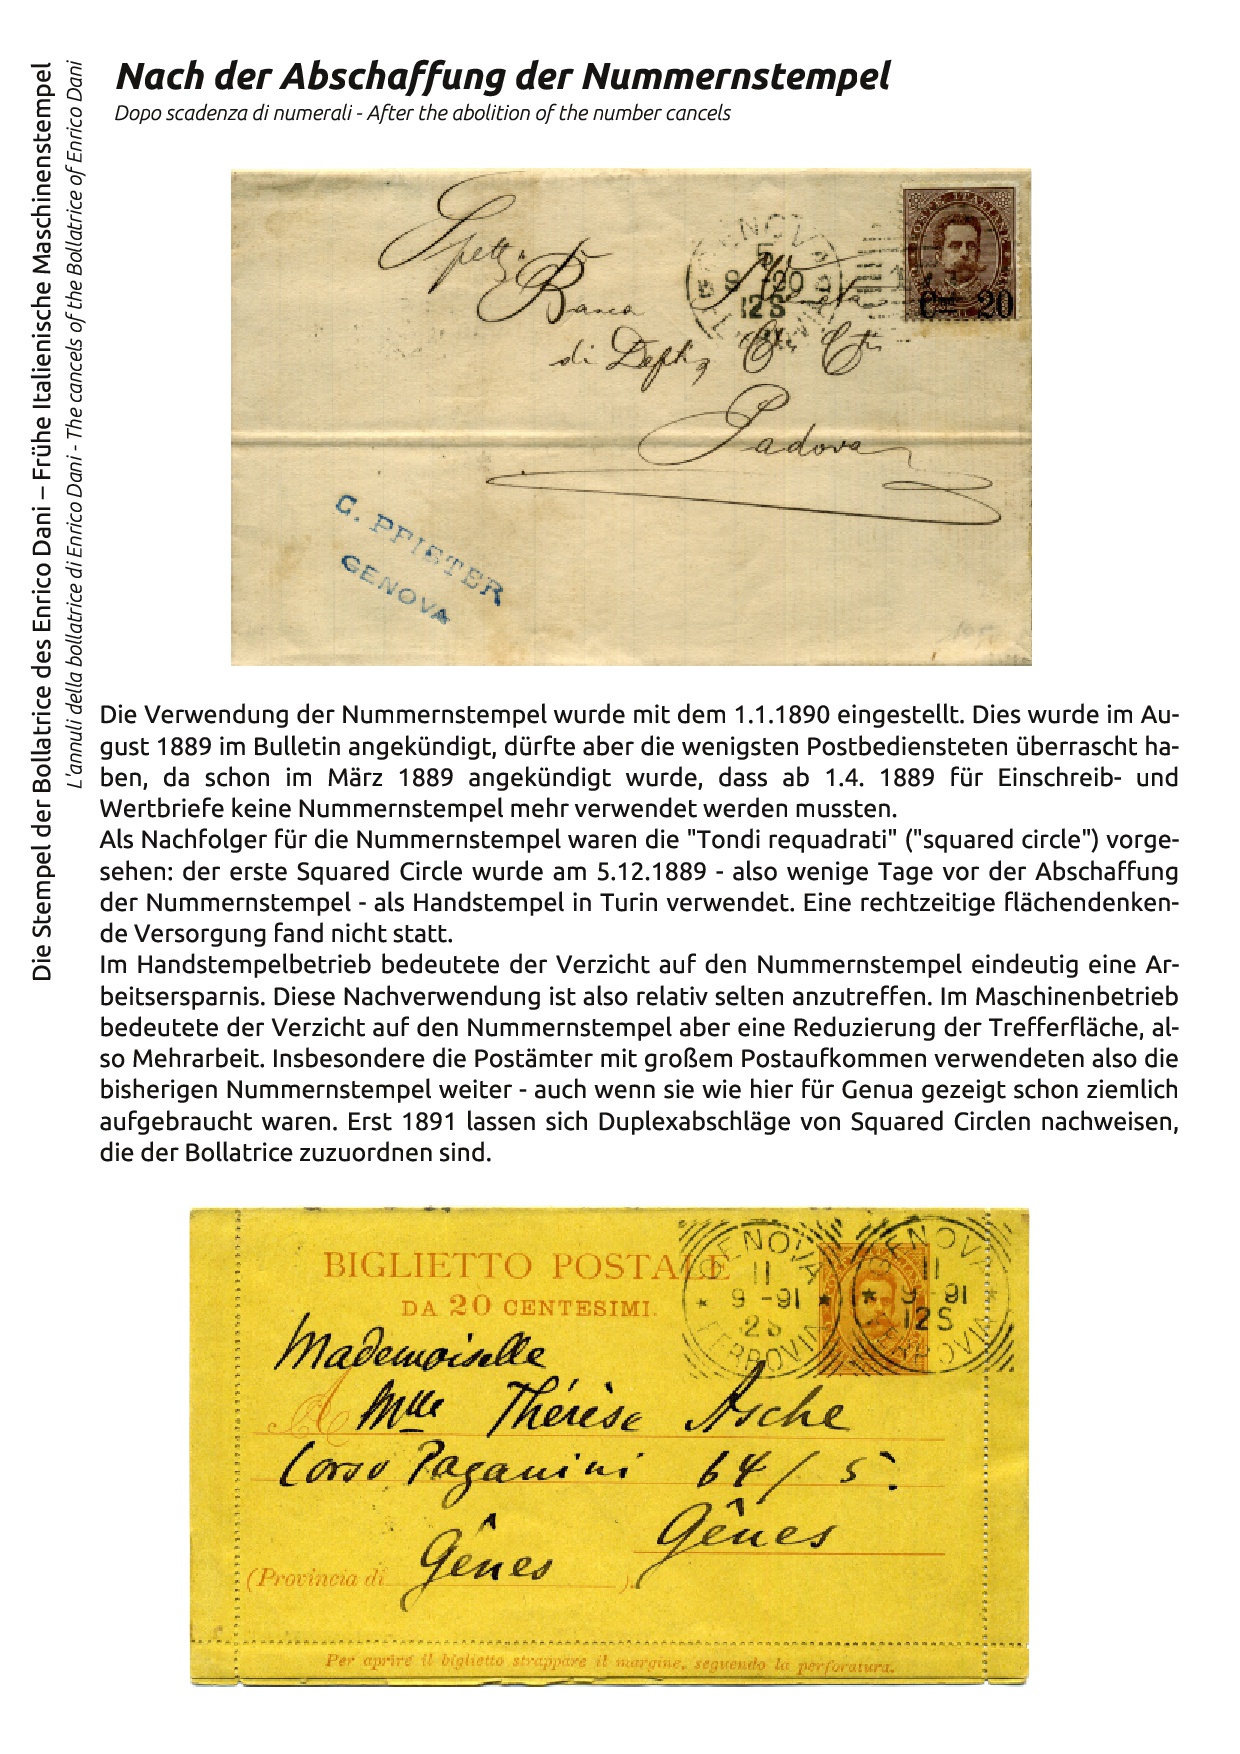 Die Stempel der Bollatrice des Enrico Dani – Frühe Italienische Maschinenstempel
L'annuli della bollatrice di Enrico Dani - The cancels of the Bollatrice of Enrico Dani
Nach der Abschaffung der Nummernstempel
Dopo scadenza di numerali - After the abolition of the number cancels
GENOVA
5
9 -20
12S
C᠎mi 20
Banca
Padova
G. PFISTER
GENOVA
Die Verwendung der Nummernstempel wurde mit dem 1.1.1890 eingestellt. Dies wurde im Au-
gust 1889 im Bulletin angekündigt, dürfte aber die wenigsten Postbediensteten überrascht ha-
ben, da schon im März 1889 angekündigt wurde, dass ab 1.4. 1889 für Einschreib- und
Wertbriefe keine Nummernstempel mehr verwendet werden mussten.
Als Nachfolger für die Nummernstempel waren die "Tondi requadrati" ("squared circle") vorge-
sehen: der erste Squared Circle wurde am 5.12.1889 - also wenige Tage vor der Abschaffung
der Nummernstempel - als Handstempel in Turin verwendet. Eine rechtzeitige flächendenken-
de Versorgung fand nicht statt.
Im Handstempelbetrieb bedeutete der Verzicht auf den Nummernstempel eindeutig eine Ar-
beitsersparnis. Diese Nachverwendung ist also relativ selten anzutreffen. Im Maschinenbetrieb
bedeutete der Verzicht auf den Nummernstempel aber eine Reduzierung der Trefferfläche, al-
so Mehrarbeit. Insbesondere die Postämter mit großem Postaufkommen verwendeten also die
bisherigen Nummernstempel weiter - auch wenn sie wie hier für Genua gezeigt schon ziemlich
aufgebraucht waren. Erst 1891 lassen sich Duplexabschläge von Squared Circlen nachweisen,
die der Bollatrice zuzuordnen sind.
BIGLIETTO POSTALE
DA 20 CENTESIMI.
GENOVA
11
9 -91
2S
FERROVIA
GENOVA
11
9 -91
12S
FERROVIA
Mademoiselle
A Mlle Thérèse Asche
Corso Paganini 64/5.
Gênes
(Provincia di Gênes ).
Per aprire il biglietto strappare il margine, seguendo la perforatura.